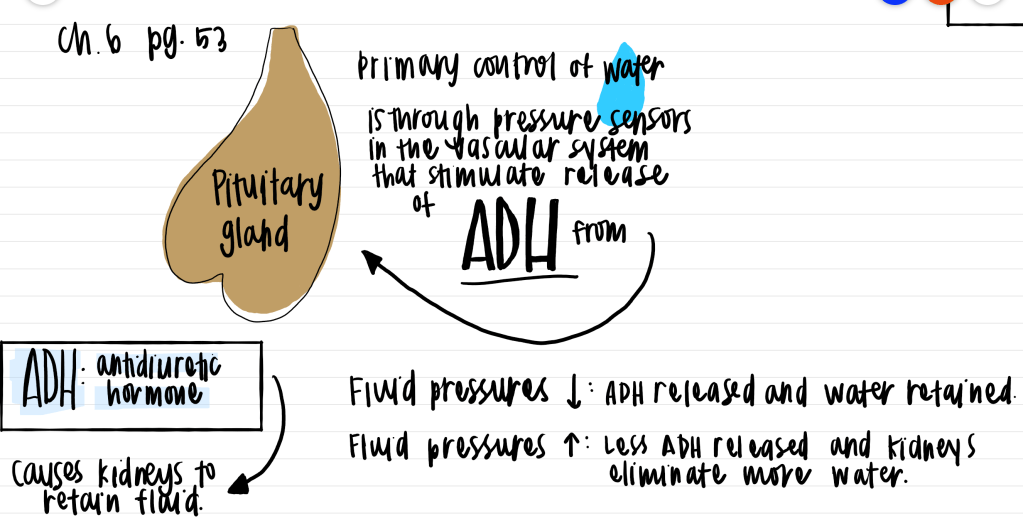 Ch. 6 pg. 53
primary control of water
is through pressure sensors
in the vascular system
that stimulate release
of
ADH from
Pituitary
gland
ADH: antidiuretic
hormone
causes kidneys to
retain fluid.
Fluid pressures ↓: ADH released and water retained.
Fluid pressures ↑: Less ADH released and kidneys
eliminate more water.